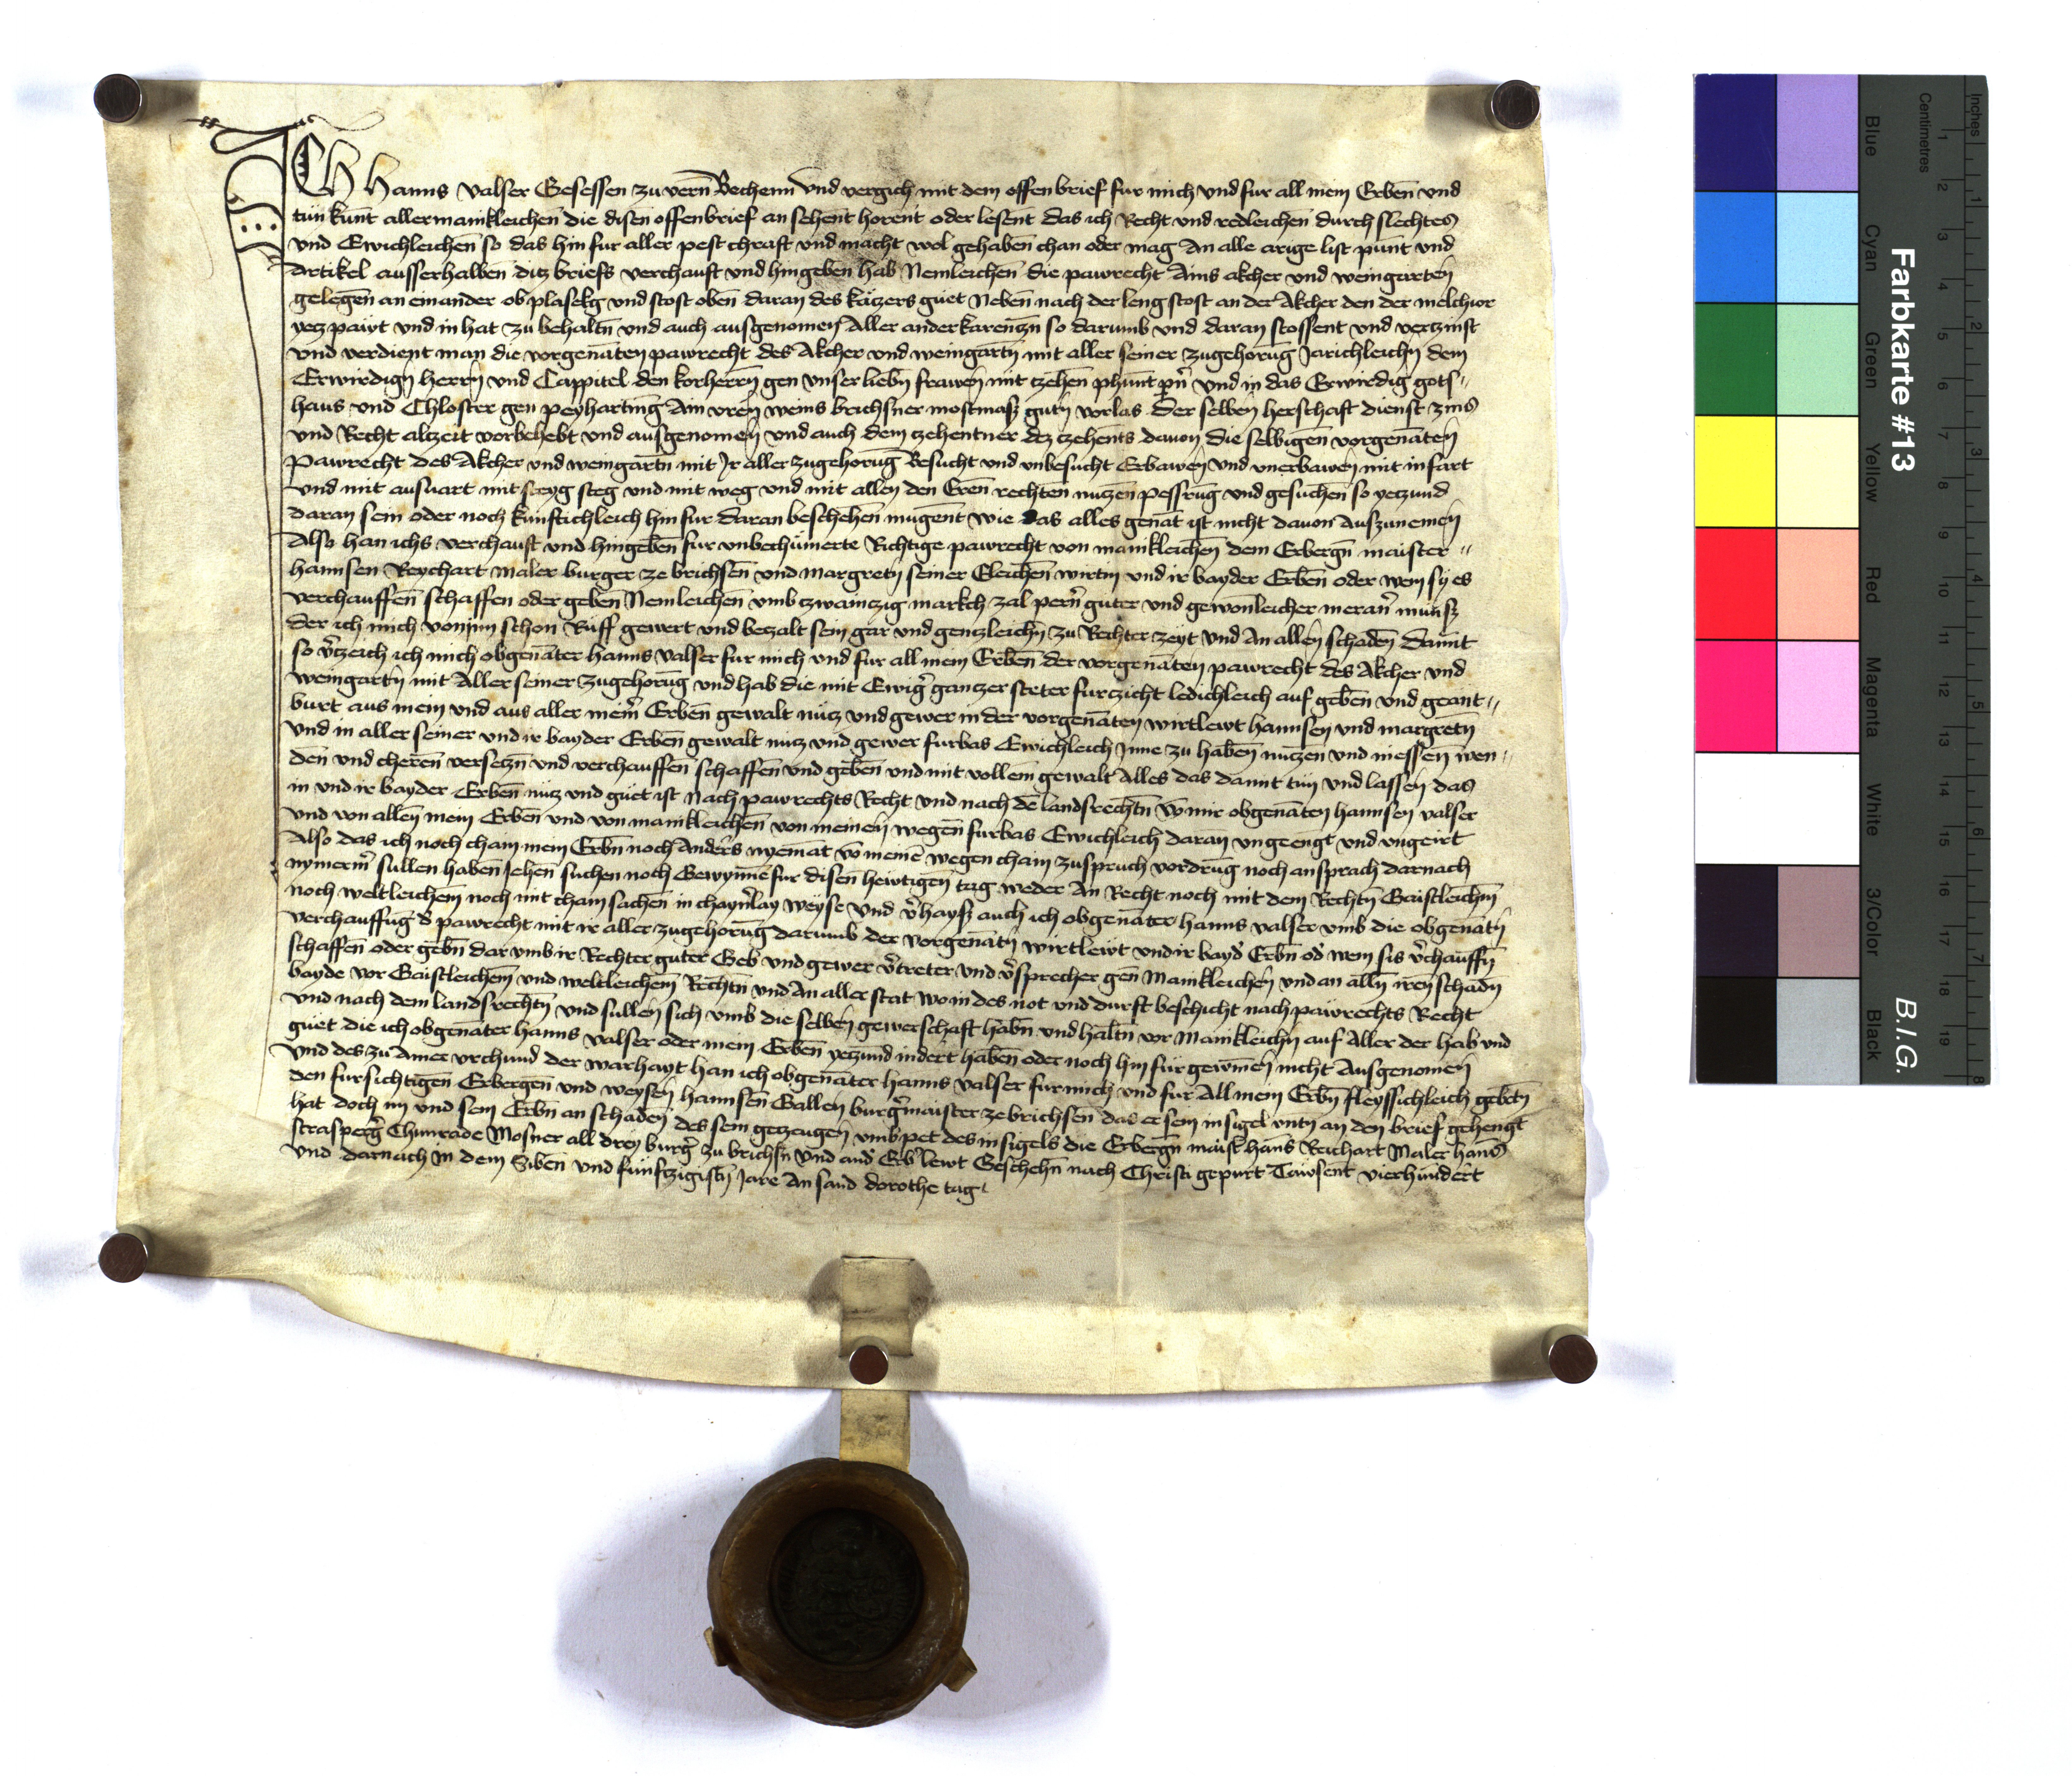 ICh Hanns Valser Gesessen zu vern Bechenn Vnd vergich mit dem offen brief fur mich vnd fur all mein Erben vnd
tun kunt allermainkleichen die disen offenbrief an sehent horent oder lesent das ich Recht vnd redleichen durch slechtes
vnd Ewichleichen so das hin fur aller pest chraft vnd macht wol gehaben chan oder mag An alle arige list punt vnd
Artikel ausserhalben ditz briefs verchauft vnd hingeben hab Nemleichen die pawrecht Ains akcher vnd weingarten
gelegen an einander ob plasekg vnd stost oben daran des kätzers guet Neben nach der leng stost an der Akcher den der melchior
yetz pawt vnd in hat zu behaltn vnd auch ausgenomen Aller ander so darumb vnd daran stossent vnd vertzinst
vnd verdient man die vorgenäten pawrecht des Akcher vnd weingartn mit aller seiner zugehorug Jarichleichn dem
Erwirdign herrn vnd Cappitel den korherrn gen vnser liebn frawen mit tzehen phunt pn vnd in das Erwirdig gots"
haus vnd Chloster gen peyharting Ain vren weins brichsner mostmass gutn vorlas der selben herschaft dienst zins
vnd Recht altzeit vorbehebt vnd ausgenomen vnd auch dem tzehentner dez tzehents dauon die selbigen vorgenäten
pawrecht des Akcher vnd weingartn mit Jr aller zugehorug Besucht vnd vnbesucht Erbawen vnd vnerbawen mit infart
vnd mit ausuart mit steyg steg vnd mit weg vnd mit allen den Eren rechten nutzen pessrug vnd gesuchen so yetzund
daran sein oder noch kunftichleich hin fur daran beschehen mugent wie das alles genät ist nicht dauon Auszunemen
Also han ichs verchauft vnd hingeben fur vnbechumerte Richtige pawrecht von mainkleichen dem Erbergn maister "
hannsen Reychart maler burger ze brichsen vnd Margretn seiner Eleichen wirtin vnd ir bayder Erben oder wem sy es
verchauffen schaffen oder geben Nemleichen vmb tzwaintzig markch zal pern guter vnd gewonleicher meran munss
der ich mich von inn schon Ruff gewert vnd betzalt sein gar vnd gentzleichn zu Rechter zeyt vnd An allen schaden Damit
so v'tzeich ich mich obgenäter hanns valser fur mich vnd fur all mein Erben der vorgenäten pawrecht des Akcher vnd
weingartn mit Aller seiner zugehorug vnd hab die mit Ewig' gantzer steter furtzicht ledichleich auf geben vnd geant"
burt aus mein vnd aus aller mein' Erben gewalt nutz vnd gewer in der vorgenäten wirtlewt hannsen vnd margretn
vnd in aller seiner vnd ir bayder Erben gewalt nutz vnd gewer furbas Ewichleich Jnne zu haben nutzen vnd niessen wen"
den vnd cheren versetzn vnd verchauffen schaffen vnd geben vnd mit vollem gewalt Alles das damit tun vnd lassen das
in vnd ir bayder Erben nutz vnd guet ist Nach pawrechts Recht vnd nach de landsrechtn vo mir obgenäten hannsen valser
vnd von allen mein Erben vnd von mainkleichen von meinen wegen furbas Ewichleich daran vngeengt vnd vngeirt
Also das ich noch chain mein Erbn noch Anders nyemat vo meine wegen chain zuspruch vordrug noch ansprach darnach
nymerm' sullen haben Jehen suchen noch Gewynne fur disen hewtigen tag weder An Recht noch mit dem Rechtn Gaistleichm
noch weltleichem noch mit chain sachen in chayn'lay weyse Vnd v'hayss auch ich obgenäter hanns valser vmb die obgenätn
verchauffug d' pawrecht mit ir aller zugehorug darumb der vorgenätn wirtlewt vnd ir bayd' Erbn od' wem sis v'chauffn
schaffen oder gebn dar vmb ir Rechter guter Geb vnd gewer v'treter vnd v'sprecher gen Mainkleichen vnd an alln iren schadn
bayde vor Gaistleichem vnd weltleichem Rechtn vnd An aller stat wo in des not vnd durft beschicht nach pawrechts Recht
vnd nach dem landsrechtn vnd sullen sich vmb die selben gewerschaft habn vnd haltn vor Mainkleichn auf Aller der hab vnd
guet die ich obgenäter hanns valser oder mein Erben yetzund indert haben oder noch hin fur gewinen nicht Ausgenomen
Vnd des zu Ainer vrchund der warhayt han ich obgenäter hanns valser fur mich vnd fur All mein Erbn fleyssichleich gebetn
den fursichtigen Erbergen vnd weysen hannsen Gallen burg'maister ze brichsen das er sein insigel vntn an den brief gehengt
hat doch im vnd sein Erbn an schaden des sein getzeugen vmb pet des insigels die Erbergn maist' hans Reichart Maler hans
strasperg' Chunrade Mosner all drey burg' zu brichsn vnd and' Erb' lewt Geschehn nach Christi gepurt Tawsent vierhundert
vnd darnach in dem Siben vnd funftzigistn Jare An sand dorothe tag
Farbkarte #13
B.I.G.
Inches
Centimetres
1 2 3 4 5 6 7 8 9 10 11 12 13 14 15 16 17 18 19
1 2 3 4 5 6 7 8
Blue Cyan Green Yellow Red Magenta White 3/Color Black